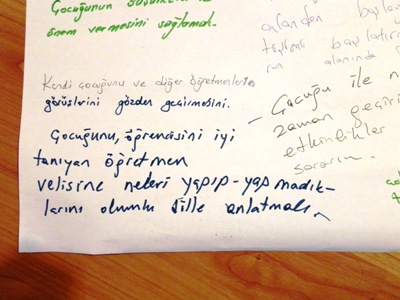 Çocuğunun
önem vermesini sağlamak.
Kendi çocuğunu ve diğer öğretmenlerle
görüşlerini gözden geçirmesini.
Çocuğunu, öğrencisini iyi
tanıyan öğretmen
velisine neleri yapıp-yapmadık-
larını olumlu dille anlatmalı
alandan
- Çocuğu ile n
zaman geçiri
etkinlikler
sorarım.